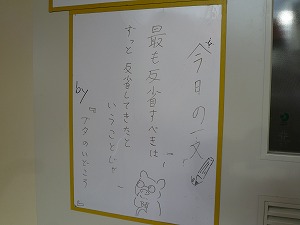 今日の一文
最も反省すべきは、
ずっと反省してきたと
いうことじゃ
by 『ブタのいどころ』